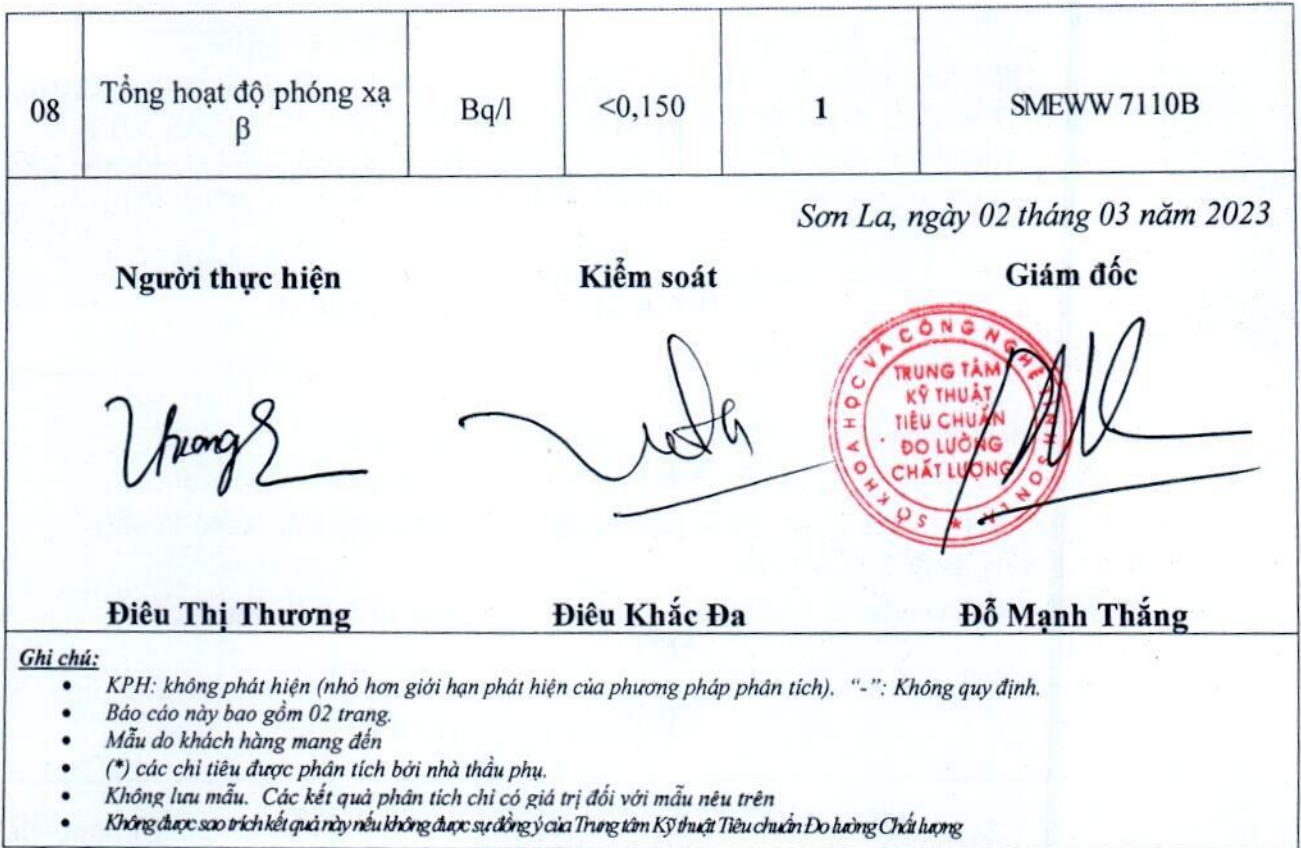 08 Tổng hoạt độ phóng xạ β Bq/l <0,150 1 SMEWW 7110B
Sơn La, ngày 02 tháng 03 năm 2023
Người thực hiện Kiểm soát Giám đốc
SỞ KHOA HỌC VÀ CÔNG NGHỆ TỈNH SƠN LA
TRUNG TÂM
KỸ THUẬT
TIÊU CHUẨN
ĐO LƯỜNG
CHẤT LƯỢNG
Điêu Thị Thương Điêu Khắc Đa Đỗ Mạnh Thắng
Ghi chú:
• KPH: không phát hiện (nhỏ hơn giới hạn phát hiện của phương pháp phân tích). “-”: Không quy định.
• Báo cáo này bao gồm 02 trang.
• Mẫu do khách hàng mang đến
• (*) các chỉ tiêu được phân tích bởi nhà thầu phụ.
• Không lưu mẫu. Các kết quả phân tích chỉ có giá trị đối với mẫu nêu trên
• Không được sao trích kết quả này nếu không được sự đồng ý của Trung tâm Kỹ thuật Tiêu chuẩn Đo lường Chất lượng